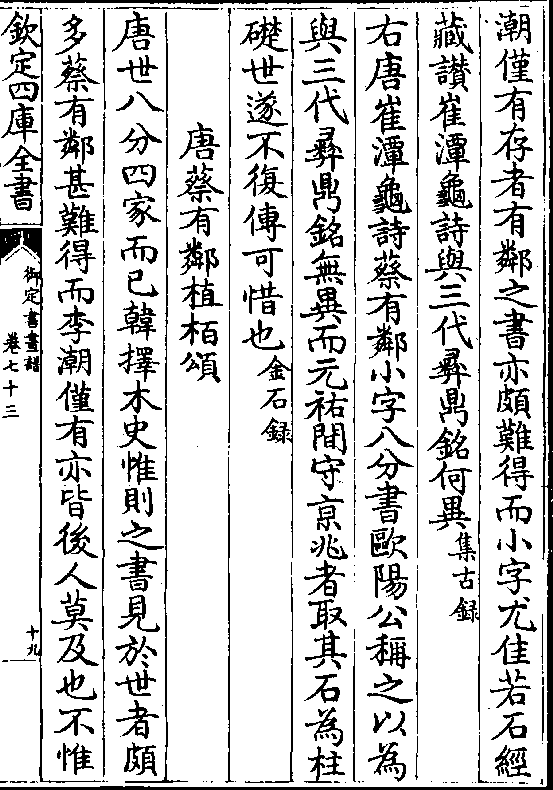 潮僅有存者有鄰之書亦頗難得而小字尤佳若石經
藏讃崔潭龜詩與三代彞鼎銘何異集古録
右唐崔潭龜詩蔡有鄰小字八分書歐陽公稱之以為
與三代彞鼎銘無異而元祐間守京兆者取其石為柱
礎世遂不復傳可惜也金石録
唐蔡有鄰植栢頌
唐世八分四家而已韓擇木史惟則之書見於世者頗
多蔡有鄰甚難得而李潮僅有亦皆後人莫及也不惟
欽定四庫全書
御定書畫譜
卷七十三
十九